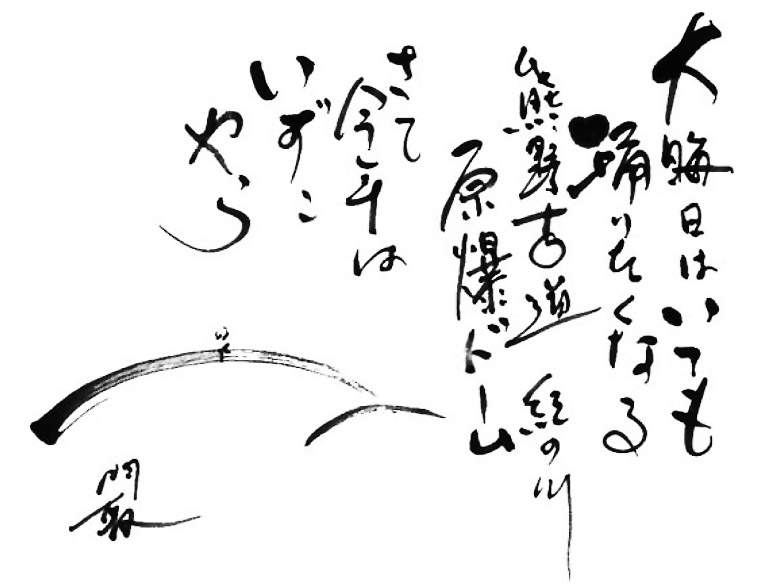 大晦日はいても
踊りたくなる
熊野古道 紀の川
原爆ドーム
さて
今年は
いずこ
やら